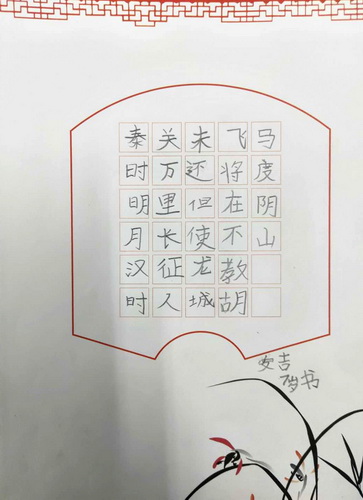 秦时明月汉时
关万里长征人
未还但使龙城
飞将在不教胡
马度阴山
安吉
7岁书